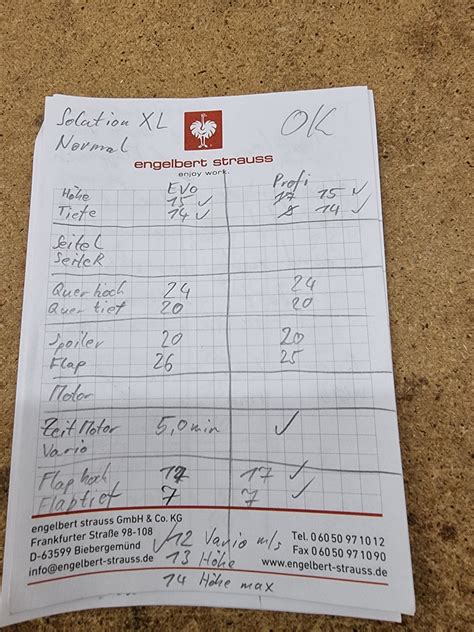 Solution XL OK
Normal
engelbert strauss
enjoy work.
Evo Profi
Höhe 15 ✓ 15 ✓
Tiefe 14 ✓ 8 14 ✓
Seite L
Seite R
Quer hoch 24 24
Quer tief 20 20
Spoiler 20 20
Flap 26 25
Motor
Zeit Motor 5,0 min ✓
Vario
Flap hoch 17 17 ✓
Flap tief 7 7 ✓
engelbert strauss GmbH & Co. KG
Frankfurter Straße 98-108
D-63599 Biebergemünd
info@engelbert-strauss.de
Tel. 0 60 50 97 10 12
Fax 0 60 50 97 10 90
www.engelbert-strauss.de
✓ 12 Vario m/s
13 Höhe
14 Höhe max